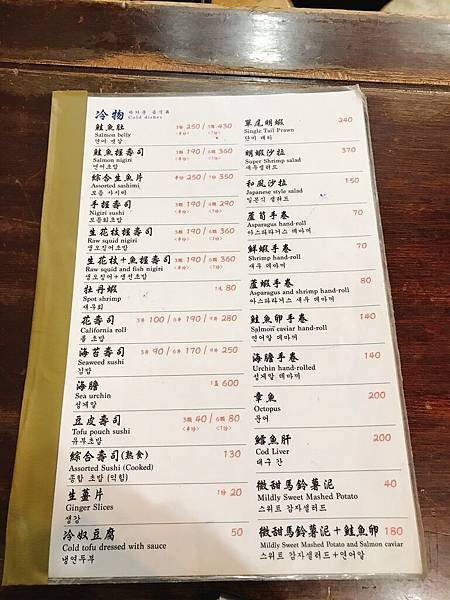 冷物
Cold dishes
鮭魚肚 3條 250 / 5條 430
Salmon belly
연어 뱃살
鮭魚握壽司 3顆 190 / 6顆 360
Salmon nigiri
연어초밥
綜合生魚片 250 / 350
Assorted sashimi
모듬 사시미
手握壽司 3顆 190 / 5顆 290
Nigiri sushi
모듬회초밥
生花枝握壽司 3顆 190 / 6顆 360
Raw squid nigiri
생오징어초밥
生花枝+魚握壽司 3顆 190 / 6顆 360
Raw squid and fish nigiri
생오징어+생선초밥
牡丹蝦 80
Spot shrimp
새우회
花壽司 3條 100 / 6條 190 / 9條 280
California roll
롤 초밥
海苔壽司 3條 90 / 6條 170 / 9條 250
Seaweed sushi
김밥
海膽 600
Sea urchin
성게알
豆皮壽司 3顆 40 / 6顆 80
Tofu pouch sushi
유부초밥
綜合壽司(熟食) 130
Assorted Sushi (Cooked)
종합 초밥 (익힘)
生薑片 1份 20
Ginger Slices
생강
冷奴豆腐 50
Cold tofu dressed with sauce
냉연두부
單尾明蝦 240
Single Tail Prawn
단미 대하
明蝦沙拉 370
Super Shrimp salad
새우샐러드
和風沙拉 150
Japanese style salad
일본식 샐러드
蘆筍手卷 70
Asparagus hand-roll
아스파라거스 데마끼
鮮蝦手卷 70
Shrimp hand-roll
새우 데마끼
蘆蝦手卷 80
Asparagus and shrimp hand-roll
아스파라거스 새우 데마끼
鮭魚卵手卷 140
Salmon caviar hand-roll
연어알 데마끼
海膽手卷 140
Urchin hand-rolled
성게알 데마끼
章魚 200
Octopus
문어
鱈魚肝 200
Cod Liver
대구 간
微甜馬鈴薯泥 40
Mildly Sweet Mashed Potato
스위트 감자샐러드
微甜馬鈴薯泥+鮭魚卵 180
Mildly Sweet Mashed Potato and Salmon caviar
스위트 감자샐러드+연어알